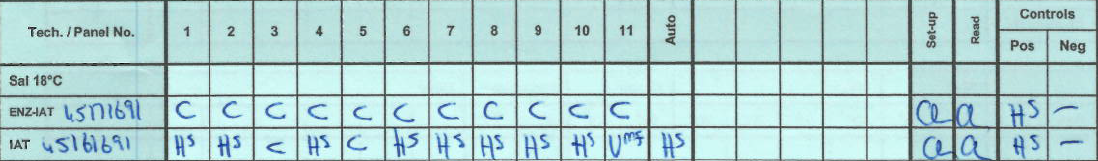 Tech. / Panel No. 1 2 3 4 5 6 7 8 9 10 11 Auto Set-up Read Controls
Pos Neg
Sal 18°C
ENZ-IAT 45171691 C C C C C C C C C C C a a HS –
IAT 45161691 HS HS C HS C HS HS HS HS HS Vmf HS a a HS –